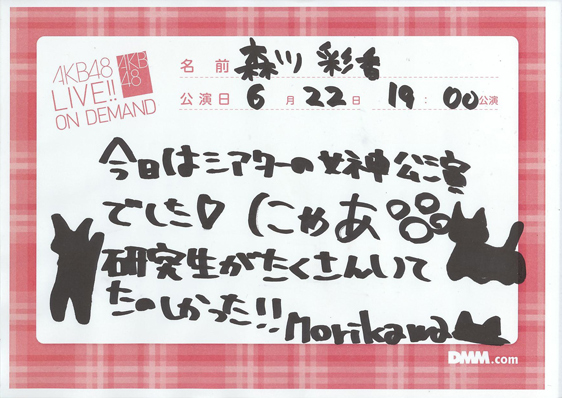 AKB48
LIVE!!
ON DEMAND
AKB
48
名前 森川 彩香
公演日 6月22日 19:00公演
今日はシアターの女神公演
でした♡ にゃあ
研究生がたくさんいて
たのしかった!!
Morikawa
DMM.com